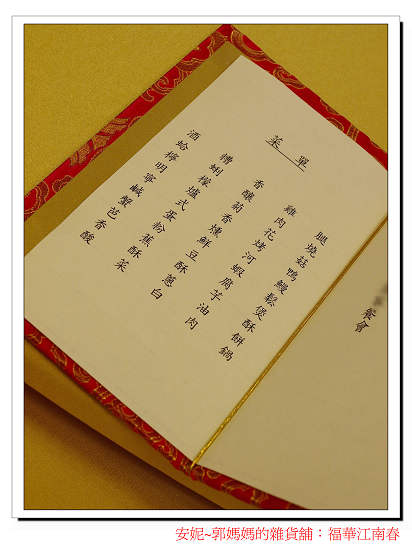 菜單
酒糟香雞腿
蛤蜊釀肉燒
檸檬菊花菇
明爐香烤鴨
寧式燻河鰻
鹹蛋鮮蝦鬆
蟹粉豆腐煲
芭蕉酥芋酥
香酥蔥油餅
酸菜白肉鍋
餐會
安妮~郭媽媽的雜貨舖：福華江南春